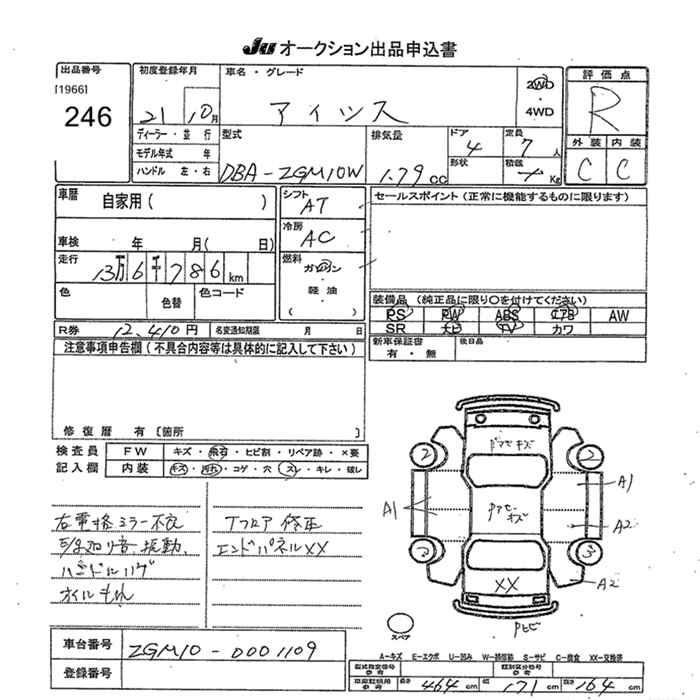 JU オークション出品申込書
出品番号
[1966]
246
初度登録年月
21 10月
ディーラー・並行
モデル年式 年
ハンドル 左・右
車名・グレード
アイシス
2WD
・
4WD
評価点
R
外装 内装
C C
型式
DBA-ZGM10W
排気量
1.79 cc
ドア
4
定員
7人
形状
積載
Kg
車歴
自家用( )
車検 年 月( 日)
走行
13万6千786km
色
色替
色コード
R券 12,410円
名変通知期限 月 日
シフト
AT
冷房
AC
燃料
ガソリン
・
軽油
( )
セールスポイント(正常に機能するものに限ります)
装備品(純正品に限り○を付けてください)
PS PW ABS エアB AW
SR ナビ TV カワ
新車保証書
有・無
後日品
注意事項申告欄(不具合内容等は具体的に記入して下さい)
修復歴 有[箇所 ]
検査員
記入欄
FW キズ・飛石・ヒビ割・リペア跡・×要
内装 キズ・汚れ・コゲ・穴・スレ・キレ・破レ
右電格ミラー不良
振動、
オイルもれ
Tフロア修正
エンドパネルXX
2 2
A1 A1
A2
2 3
A2
XX
スペア
A-キズ E-エクボ U-凹み S-サビ C-腐食 XX-交換済
車台番号 ZGM10-0001109
登録番号
型式指定番号
参考
類別区分番号
参考
車庫証明用
参考
長さ 464cm 幅 171cm 高さ 164cm